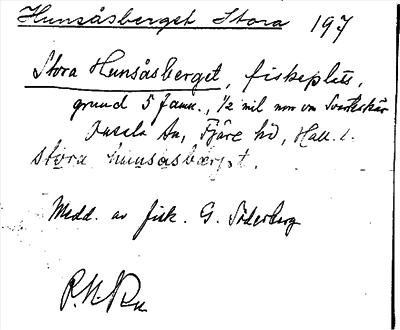 Hunsåsberget Stora 197
Stora Hunsåsberget, fiskeplats,
grund 5 famn., 1/2 mil nnv om Svartskär
Onsala sn, Fjäre hd, Hall. l.
stora hunsåsbærget.
Medd. av fisk. G. Söderberg